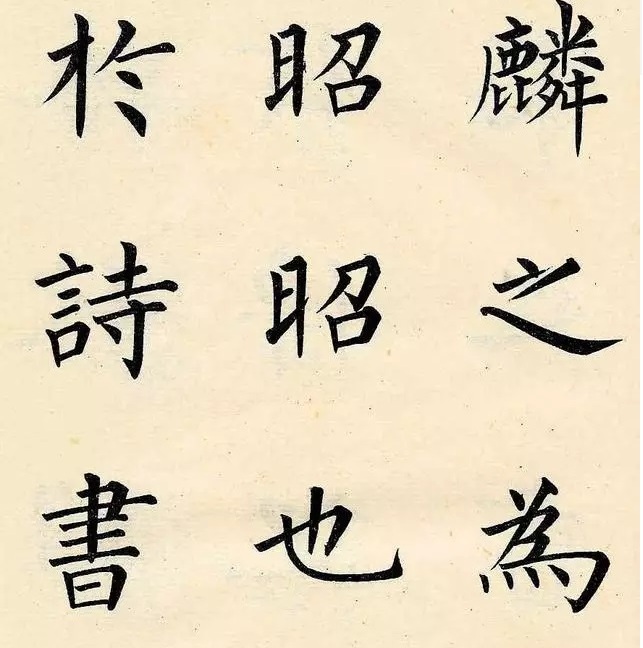 麟之為
昭昭也
於詩書